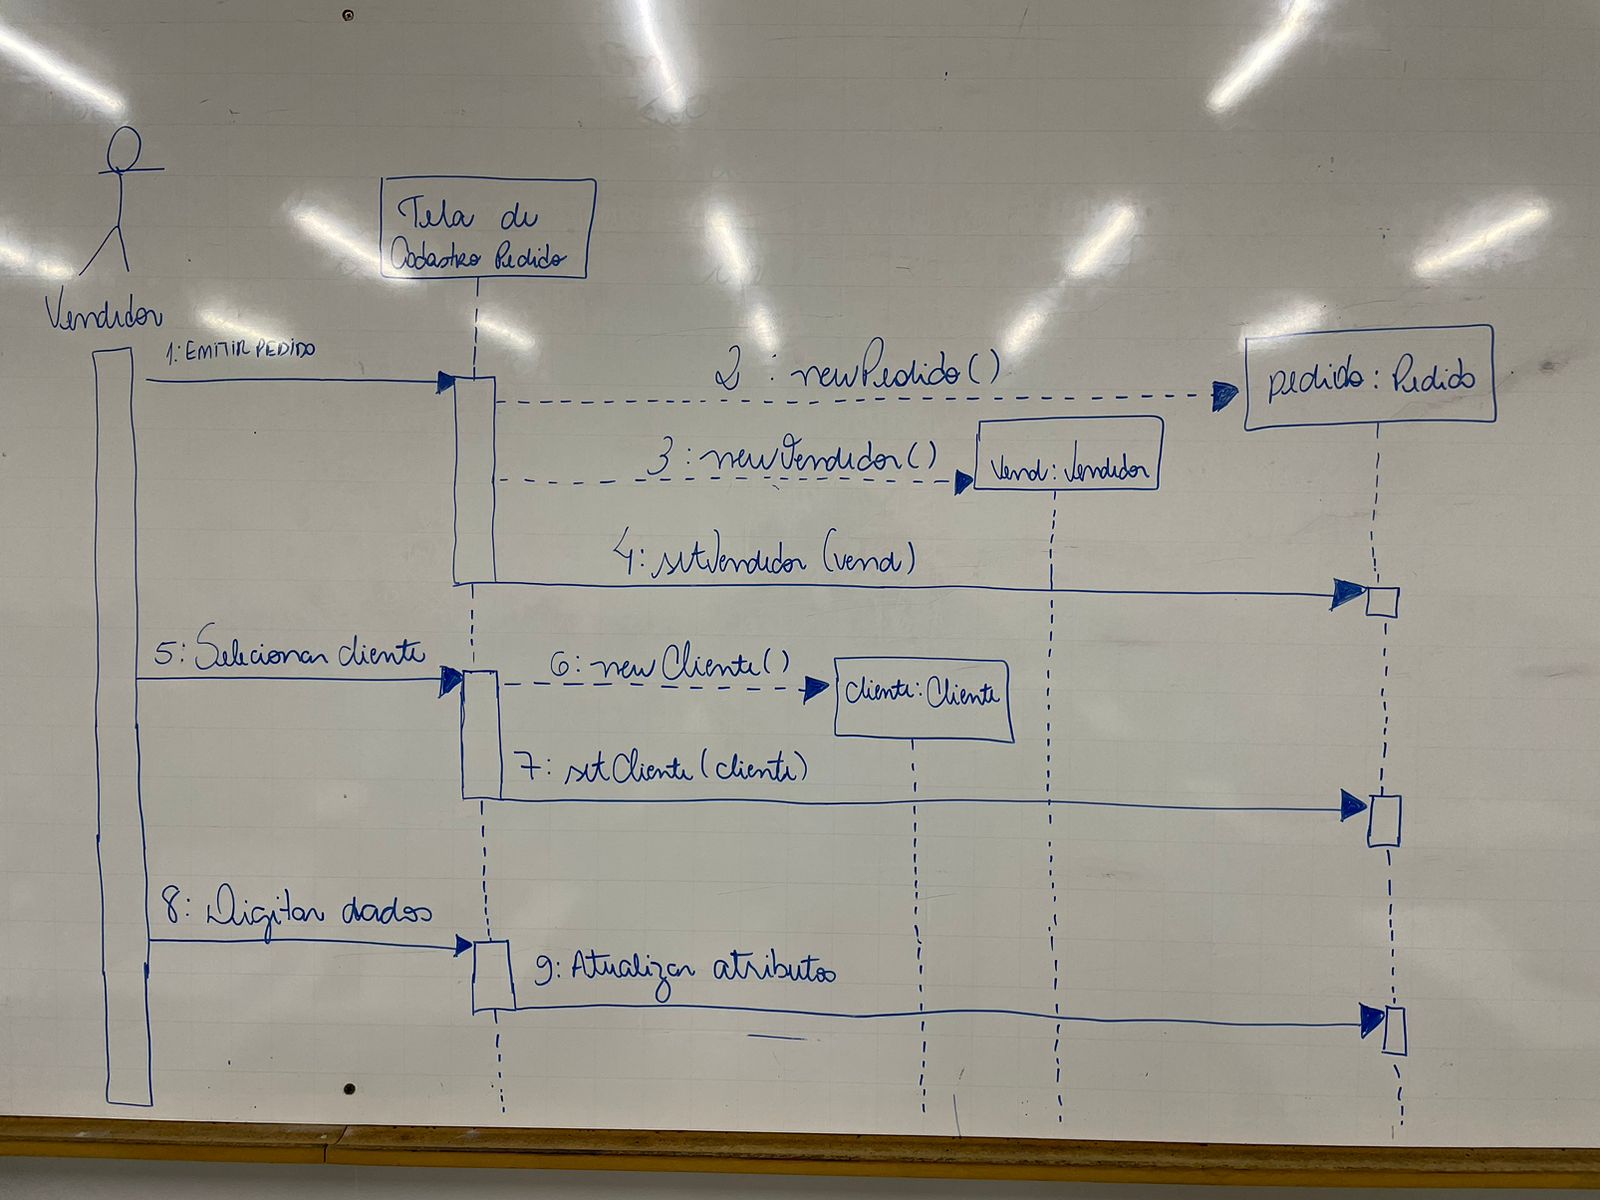 Tela de
Cadastro Pedido
Vendedor
1: EMITIR PEDIDO
2 : newPedido()
pedido: Pedido
3 : newVendedor()
Vend: Vendedor
4: setVendedor (vend)
5: Selecionar cliente
6: new Cliente()
cliente: Cliente
7: set Cliente (cliente)
8: Digitar dados
9: Atualizar atributos